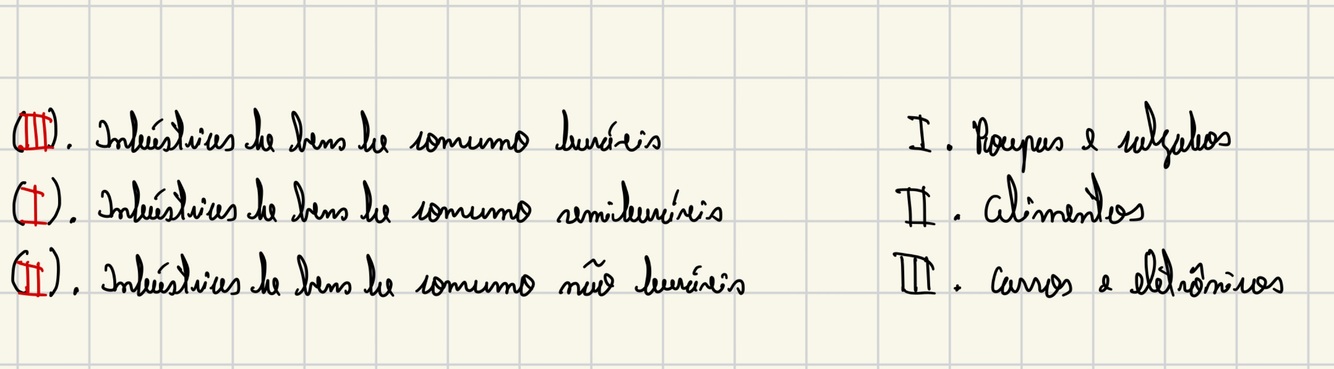 (III). Indústrias de bens de consumo duráveis I. Roupas e calçados
(I). Indústrias de bens de consumo semiduráveis II. Alimentos
(II). Indústrias de bens de consumo não duráveis III. Carros e eletrônicos